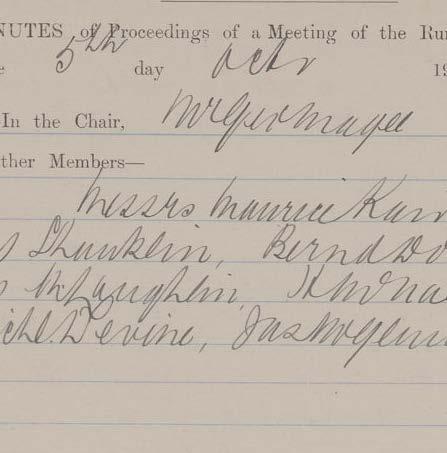 NUTES of Proceedings of a Meeting of the Rur
e 5th day Octr 19
In the Chair, Mr Geo Magee
ther Members—
Messrs Maurice
s Shanklin, Bernd Do
s McLaughlin,
ichl. Devine, Jas